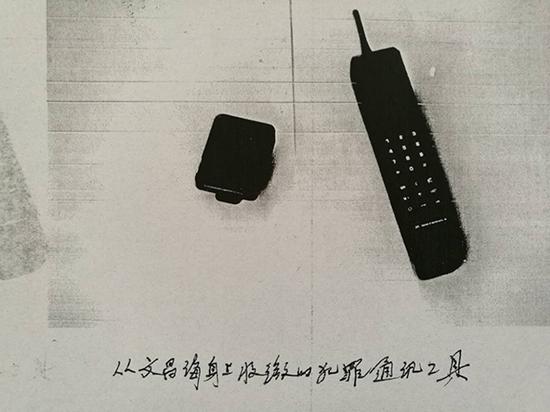 从文昌海身上收缴的犯罪通讯工具